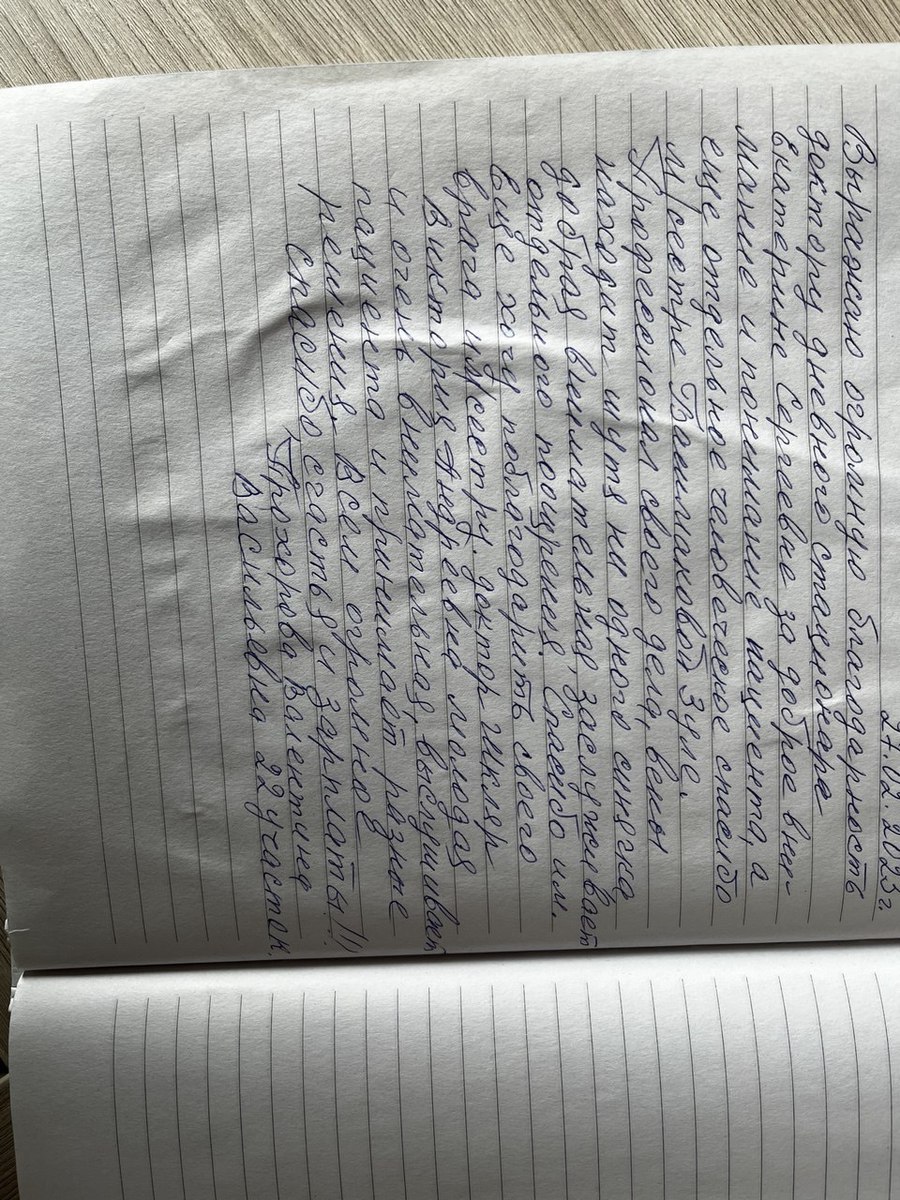 27.02.2023г
Выражаю огромную благодарность
доктору дневного стационара
Екатерине Сергеевне за доброе вни-
мание и понимание пациента, а
еще отдельное человеческое спасибо
м/сестре Зуле.
Професионал своего дела, вены
находит шутя ни одного синяка
добрая внимательная, заслуживает
отдельного поощрения. Спасибо им.
Еще хочу поблагодарить своего
врача и м/сестру. доктор Шкляр
Виктория Андреевна молодая
и очень внимательная, выслушивает
пациента и принимает разные
решения. Всем огромное
спасибо, счастья и зарплаты!!!
Прохорова Валентина
Васильевна 22 участок.